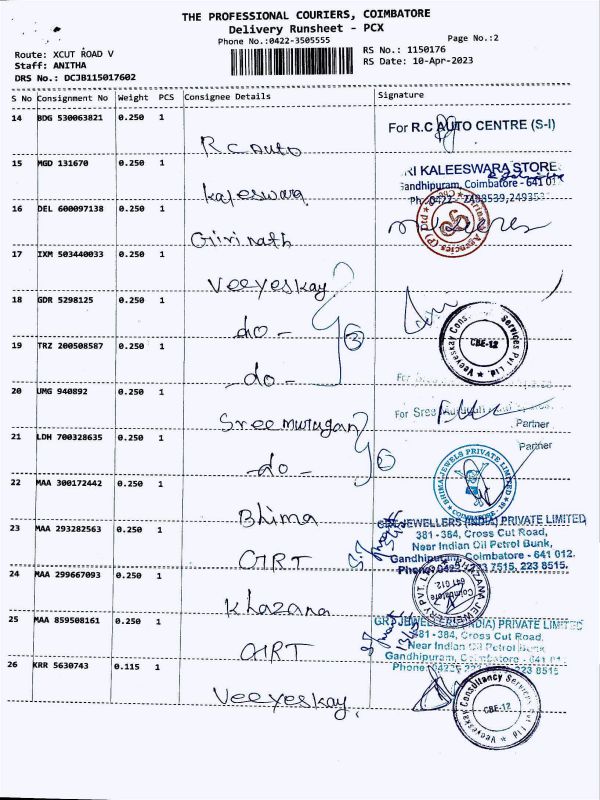 THE PROFESSIONAL COURIERS, COIMBATORE
Delivery Runsheet - PCX
Phone No.:0422-3505555
Page No.:2
Route: XCUT ROAD V
RS No.: 1150176
Staff: ANITHA
RS Date: 10-Apr-2023
DRS No.: DCJB115017602
S No Consignment No Weight PCS Consignee Details Signature
14 BDG 530063821 0.250 1
For R.C AUTO CENTRE (S-I)
R.C Auto
15 MGD 131670 0.250 1
RI KALEESWARA STORE
Gandhipuram, Coimbatore - 641 01
Kaleswara
16 DEL 600097138 0.250 1
Giri nath
17 IXM 503440033 0.250 1
Veeyeskay
18 GDR 5298125 0.250 1
-do-
3
Veeyeskay Cons Services Pvt. Ltd.
CBE-12
19 TRZ 200508587 0.250 1
-do-
20 UMG 940892 0.250 1
For Sree
Partner
Sree murugan
21 LDH 700328635 0.250 1
Partner
-do-
22 MAA 300172442 0.250 1
BHIMA JEWELS PRIVATE LIMITED
COIMBATORE
Bhima
23 MAA 293282563 0.250 1
JEWELLERS (INDIA) PRIVATE LIMITED
381 - 384, Cross Cut Road,
Near Indian Oil Petrol Bunk,
Gandhipuram, Coimbatore - 641 012.
Phone: 0422 223 7515, 223 8515.
GRT
24 MAA 299667093 0.250 1
KHAZANA JEWELLERY PVT. LTD.
Coimbatore
641 012
Khazana
25 MAA 859508161 0.250 1
GRT JEWELLERS (INDIA) PRIVATE LIMITED
381 - 384, Cross Cut Road,
Near Indian Oil Petrol Bunk
Gandhipuram, Coimbatore - 641 01
GRT
26 KRR 5630743 0.115 1
Veeyeskay Consultancy Services Pvt Ltd
CBE-12
Veeyeskay.